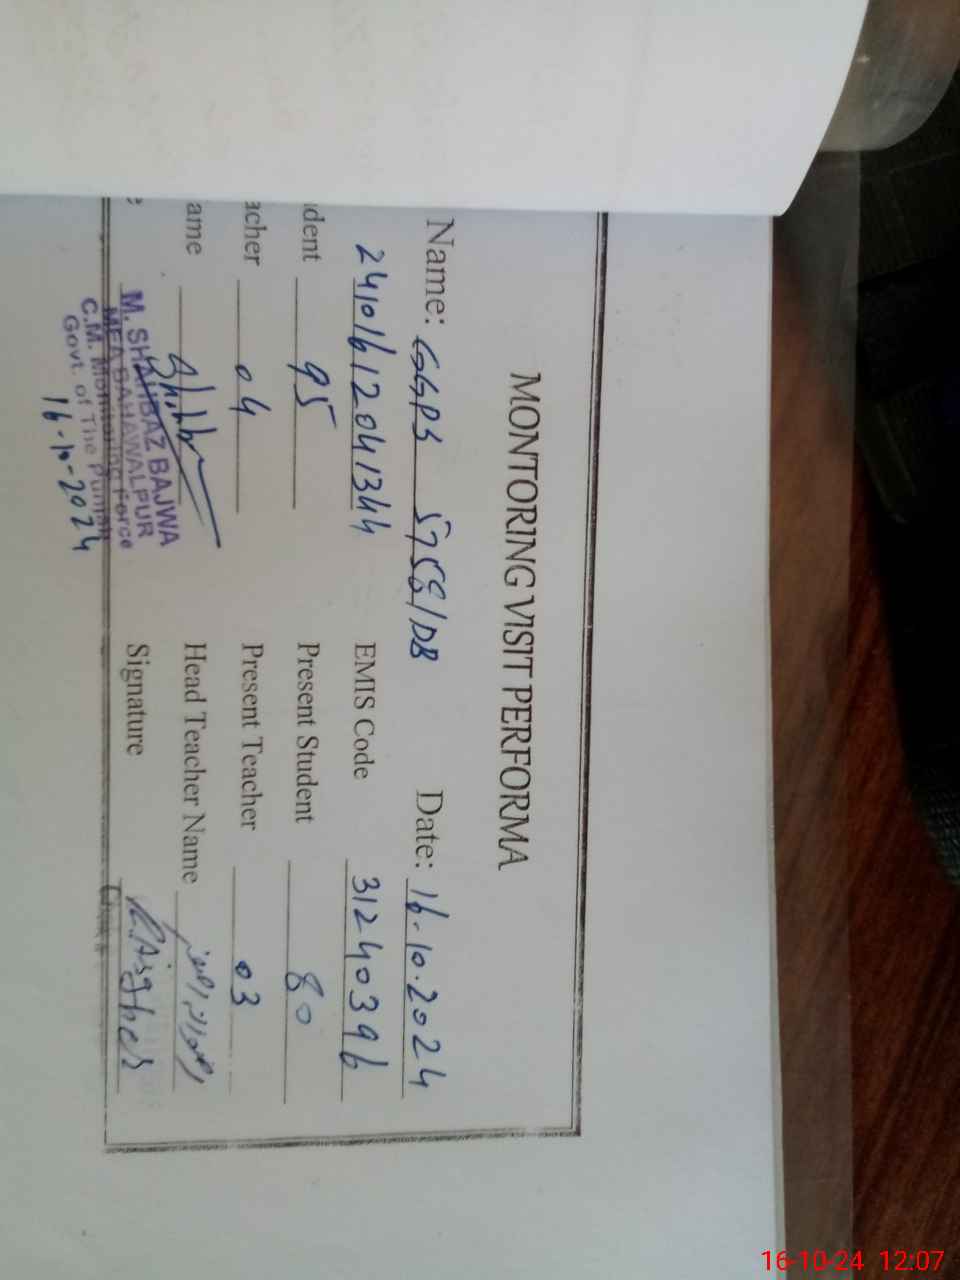 MONTORING VISIT PERFORMA
Name: GGPS 575G/DB Date: 16.10.2024
24101612041344 EMIS Code 31240396
dent 95 Present Student 80
acher 04 Present Teacher 03
ame Head Teacher Name
Signature R.Asgher
M. SHAHBAZ BAJWA
MEA BAHAWALPUR
C.M. Monitoring Force
Govt. of The Punjab
16-10-2024
16-10-24 12:07